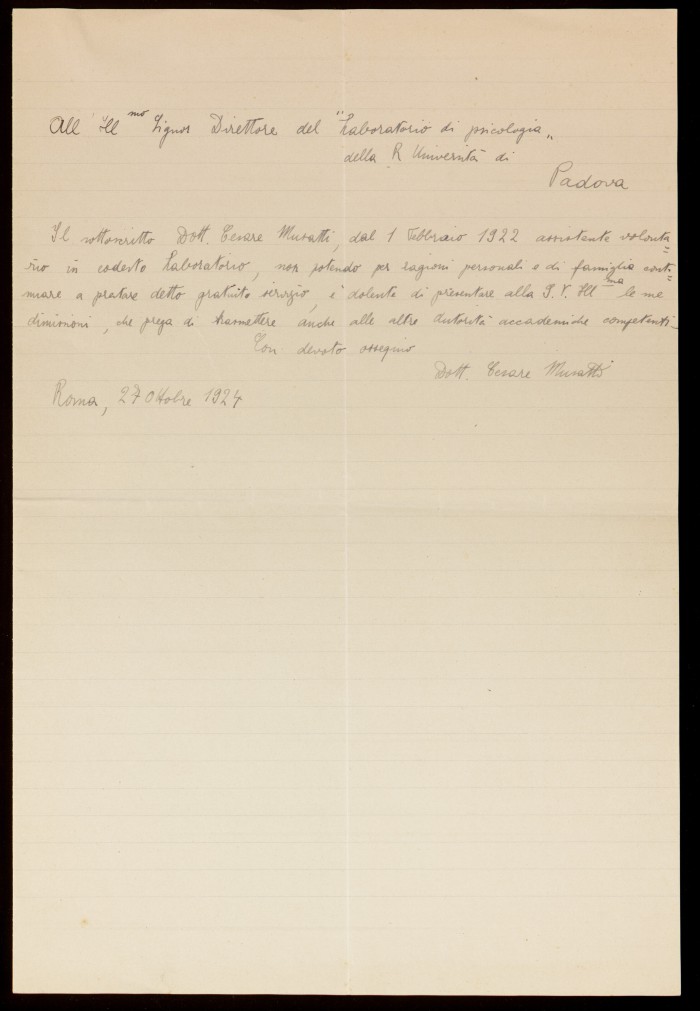 All' Ill mo Signor Direttore del "Laboratorio di psicologia„
della R Università di
Padova
Il sottoscritto Dott. Cesare Musatti, dal 1 Febbraio 1922 assistente volonta=
rio in codesto Laboratorio, non potendo per ragioni personali e di famiglia conti=
nuare a prestare detto gratuito servizio, è dolente di presentare alla S. V. Ill ma le sue
dimissioni, che prega di trasmettere anche alle altre autorità accademiche competenti_
Con devoto ossequio
Dott. Cesare Musatti
Roma, 27 Ottobre 1924